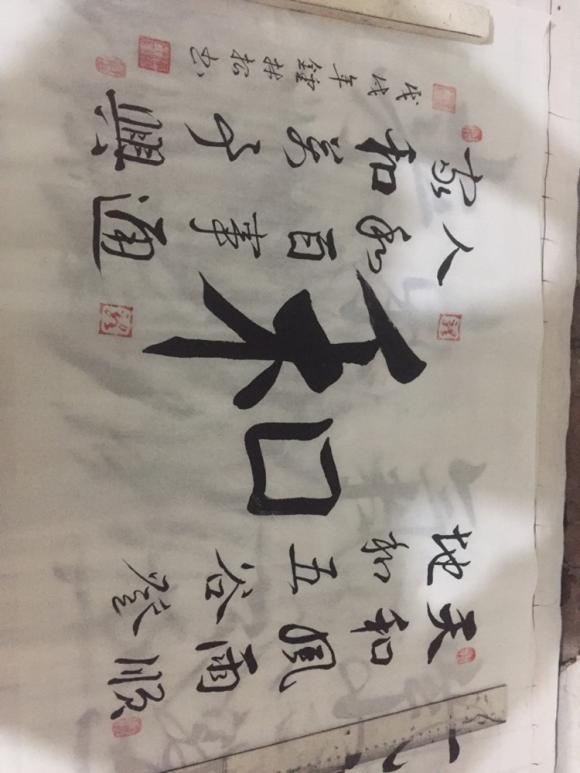 天和風雨順
地和五谷登
和
人和百事通
家和萬事興
戊戌年鐘林松书